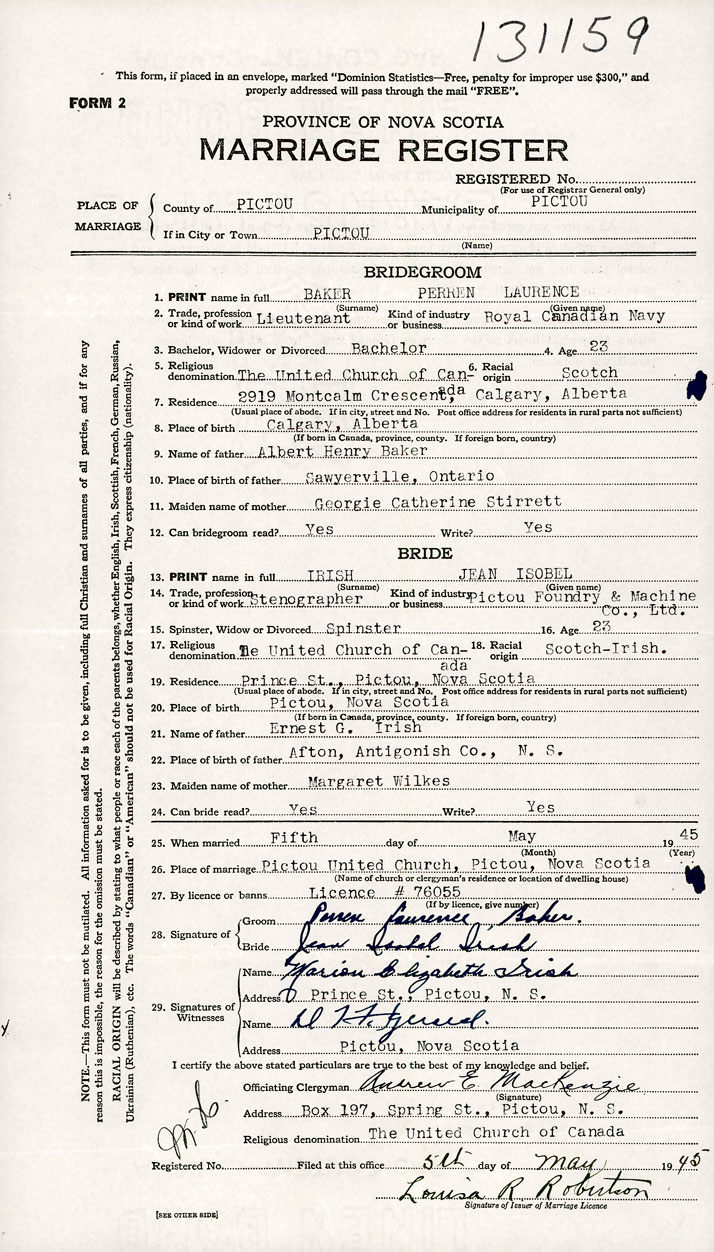 131159
This form, if placed in an envelope, marked "Dominion Statistics—Free, penalty for improper use $300," and
properly addressed will pass through the mail "FREE".
FORM 2
PROVINCE OF NOVA SCOTIA
MARRIAGE REGISTER
REGISTERED No.
(For use of Registrar General only)
PLACE OF MARRIAGE
County of PICTOU Municipality of PICTOU
If in City or Town PICTOU
(Name)
BRIDEGROOM
1. PRINT name in full BAKER PERREN LAURENCE
(Surname) (Given name)
2. Trade, profession or kind of work Lieutenant Kind of industry or business Royal Canadian Navy
3. Bachelor, Widower or Divorced Bachelor 4. Age 23
5. Religious denomination The United Church of Can-ada 6. Racial origin Scotch
7. Residence 2919 Montcalm Crescent, Calgary, Alberta
(Usual place of abode. If in city, street and No. Post office address for residents in rural parts not sufficient)
8. Place of birth Calgary, Alberta
(If born in Canada, province, county. If foreign born, country)
9. Name of father Albert Henry Baker
10. Place of birth of father Sawyerville, Ontario
11. Maiden name of mother Georgie Catherine Stirrett
12. Can bridegroom read? Yes Write? Yes
BRIDE
13. PRINT name in full IRISH JEAN ISOBEL
(Surname) (Given name)
14. Trade, profession or kind of work Stenographer Kind of industry or business Pictou Foundry & Machine
Co., Ltd.
15. Spinster, Widow or Divorced Spinster 16. Age 23
17. Religious denomination The United Church of Can- 18. Racial origin Scotch-Irish.
ada
19. Residence Prince St., Pictou, Nova Scotia
(Usual place of abode. If in city, street and No. Post office address for residents in rural parts not sufficient)
20. Place of birth Pictou, Nova Scotia
(If born in Canada, province, county. If foreign born, country)
21. Name of father Ernest G. Irish
22. Place of birth of father Afton, Antigonish Co., N. S.
23. Maiden name of mother Margaret Wilkes
24. Can bride read? Yes Write? Yes
25. When married Fifth day of May 1945
(Month) (Year)
26. Place of marriage Pictou United Church, Pictou, Nova Scotia
(Name of church or clergyman's residence or location of dwelling house)
27. By licence or banns Licence # 76055
(If by licence, give number)
28. Signature of
Groom Perren Laurence Baker.
Bride Jean Isobel Irish
29. Signatures of Witnesses
Name Marion Elizabeth Irish
Address Prince St., Pictou, N. S.
Name
Address Pictou, Nova Scotia
I certify the above stated particulars are true to the best of my knowledge and belief.
Officiating Clergyman Andrew E. MacKenzie
(Signature)
Address Box 197, Spring St., Pictou, N. S.
Religious denomination The United Church of Canada
Registered No. Filed at this office 5th day of May 1945
Louisa R. Robertson
Signature of Issuer of Marriage Licence
[SEE OTHER SIDE]
NOTE.—This form must not be mutilated. All information asked for is to be given, including full Christian and surnames of all parties, and if for any
reason this is impossible, the reason for the omission must be stated.
RACIAL ORIGIN will be described by stating to what people or race each of the parents belongs, whether English, Irish, Scottish, French, German, Russian,
Ukrainian (Ruthenian), etc. The words "Canadian" or "American" should not be used for Racial Origin. They express citizenship (nationality).